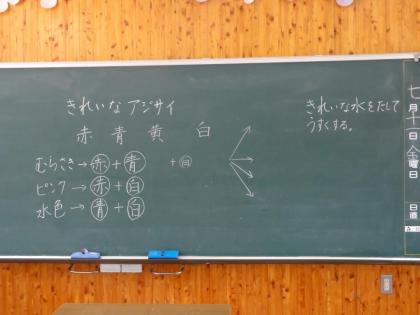 きれいなアジサイ
赤 青 黄 白
むらさき→赤+青 +白
ピンク→赤+白
水色→青+白
きれいな水をたして
うすくする。
七月十一日金曜日
日直